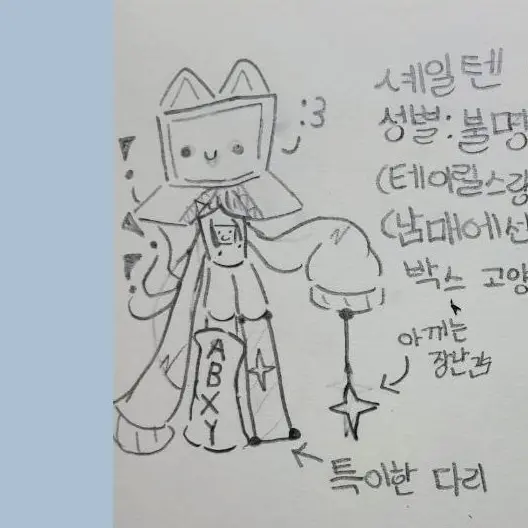 셰일텐
:3
성별:불명
(테이릴스랑
(남매에선
박스 고양
아끼는
장난감
A
B
X
Y
특이한 다리